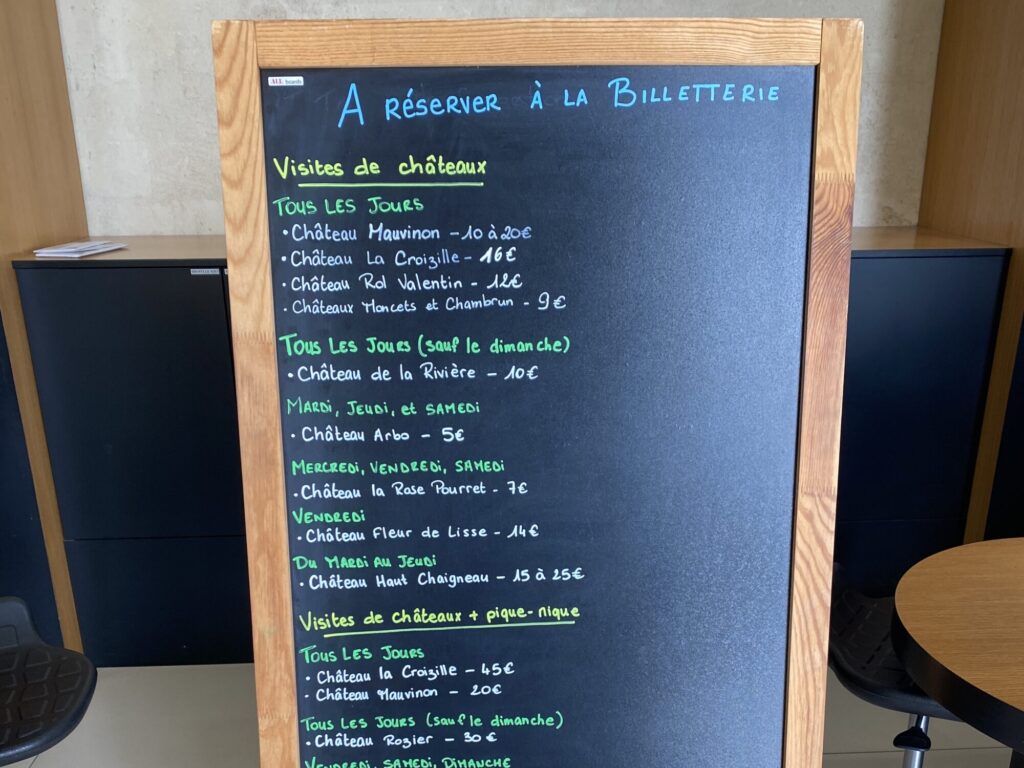 ALL boards
A RÉSERVER À LA BILLETTERIE
Visites de châteaux
TOUS LES JOURS
• Château Mauvinon – 10 à 20€
• Château La Croizille – 16€
• Château Rol Valentin – 12€
• Châteaux Moncets et Chambrun – 9€
TOUS LES JOURS (sauf le dimanche)
• Château de la Rivière – 10€
MARDI, JEUDI, et SAMEDI
• Château Arbo – 5€
MERCREDI, VENDREDI, SAMEDI
• Château la Rose Pourret – 7€
VENDREDI
• Château Fleur de Lisse – 14€
DU MARDI AU JEUDI
• Château Haut Chaigneau – 15 à 25€
Visites de châteaux + pique-nique
TOUS LES JOURS
• Château la Croizille – 45€
• Château Mauvinon – 20€
TOUS LES JOURS (sauf le dimanche)
• Château Rozier – 30€
VENDREDI, SAMEDI, DIMANCHE